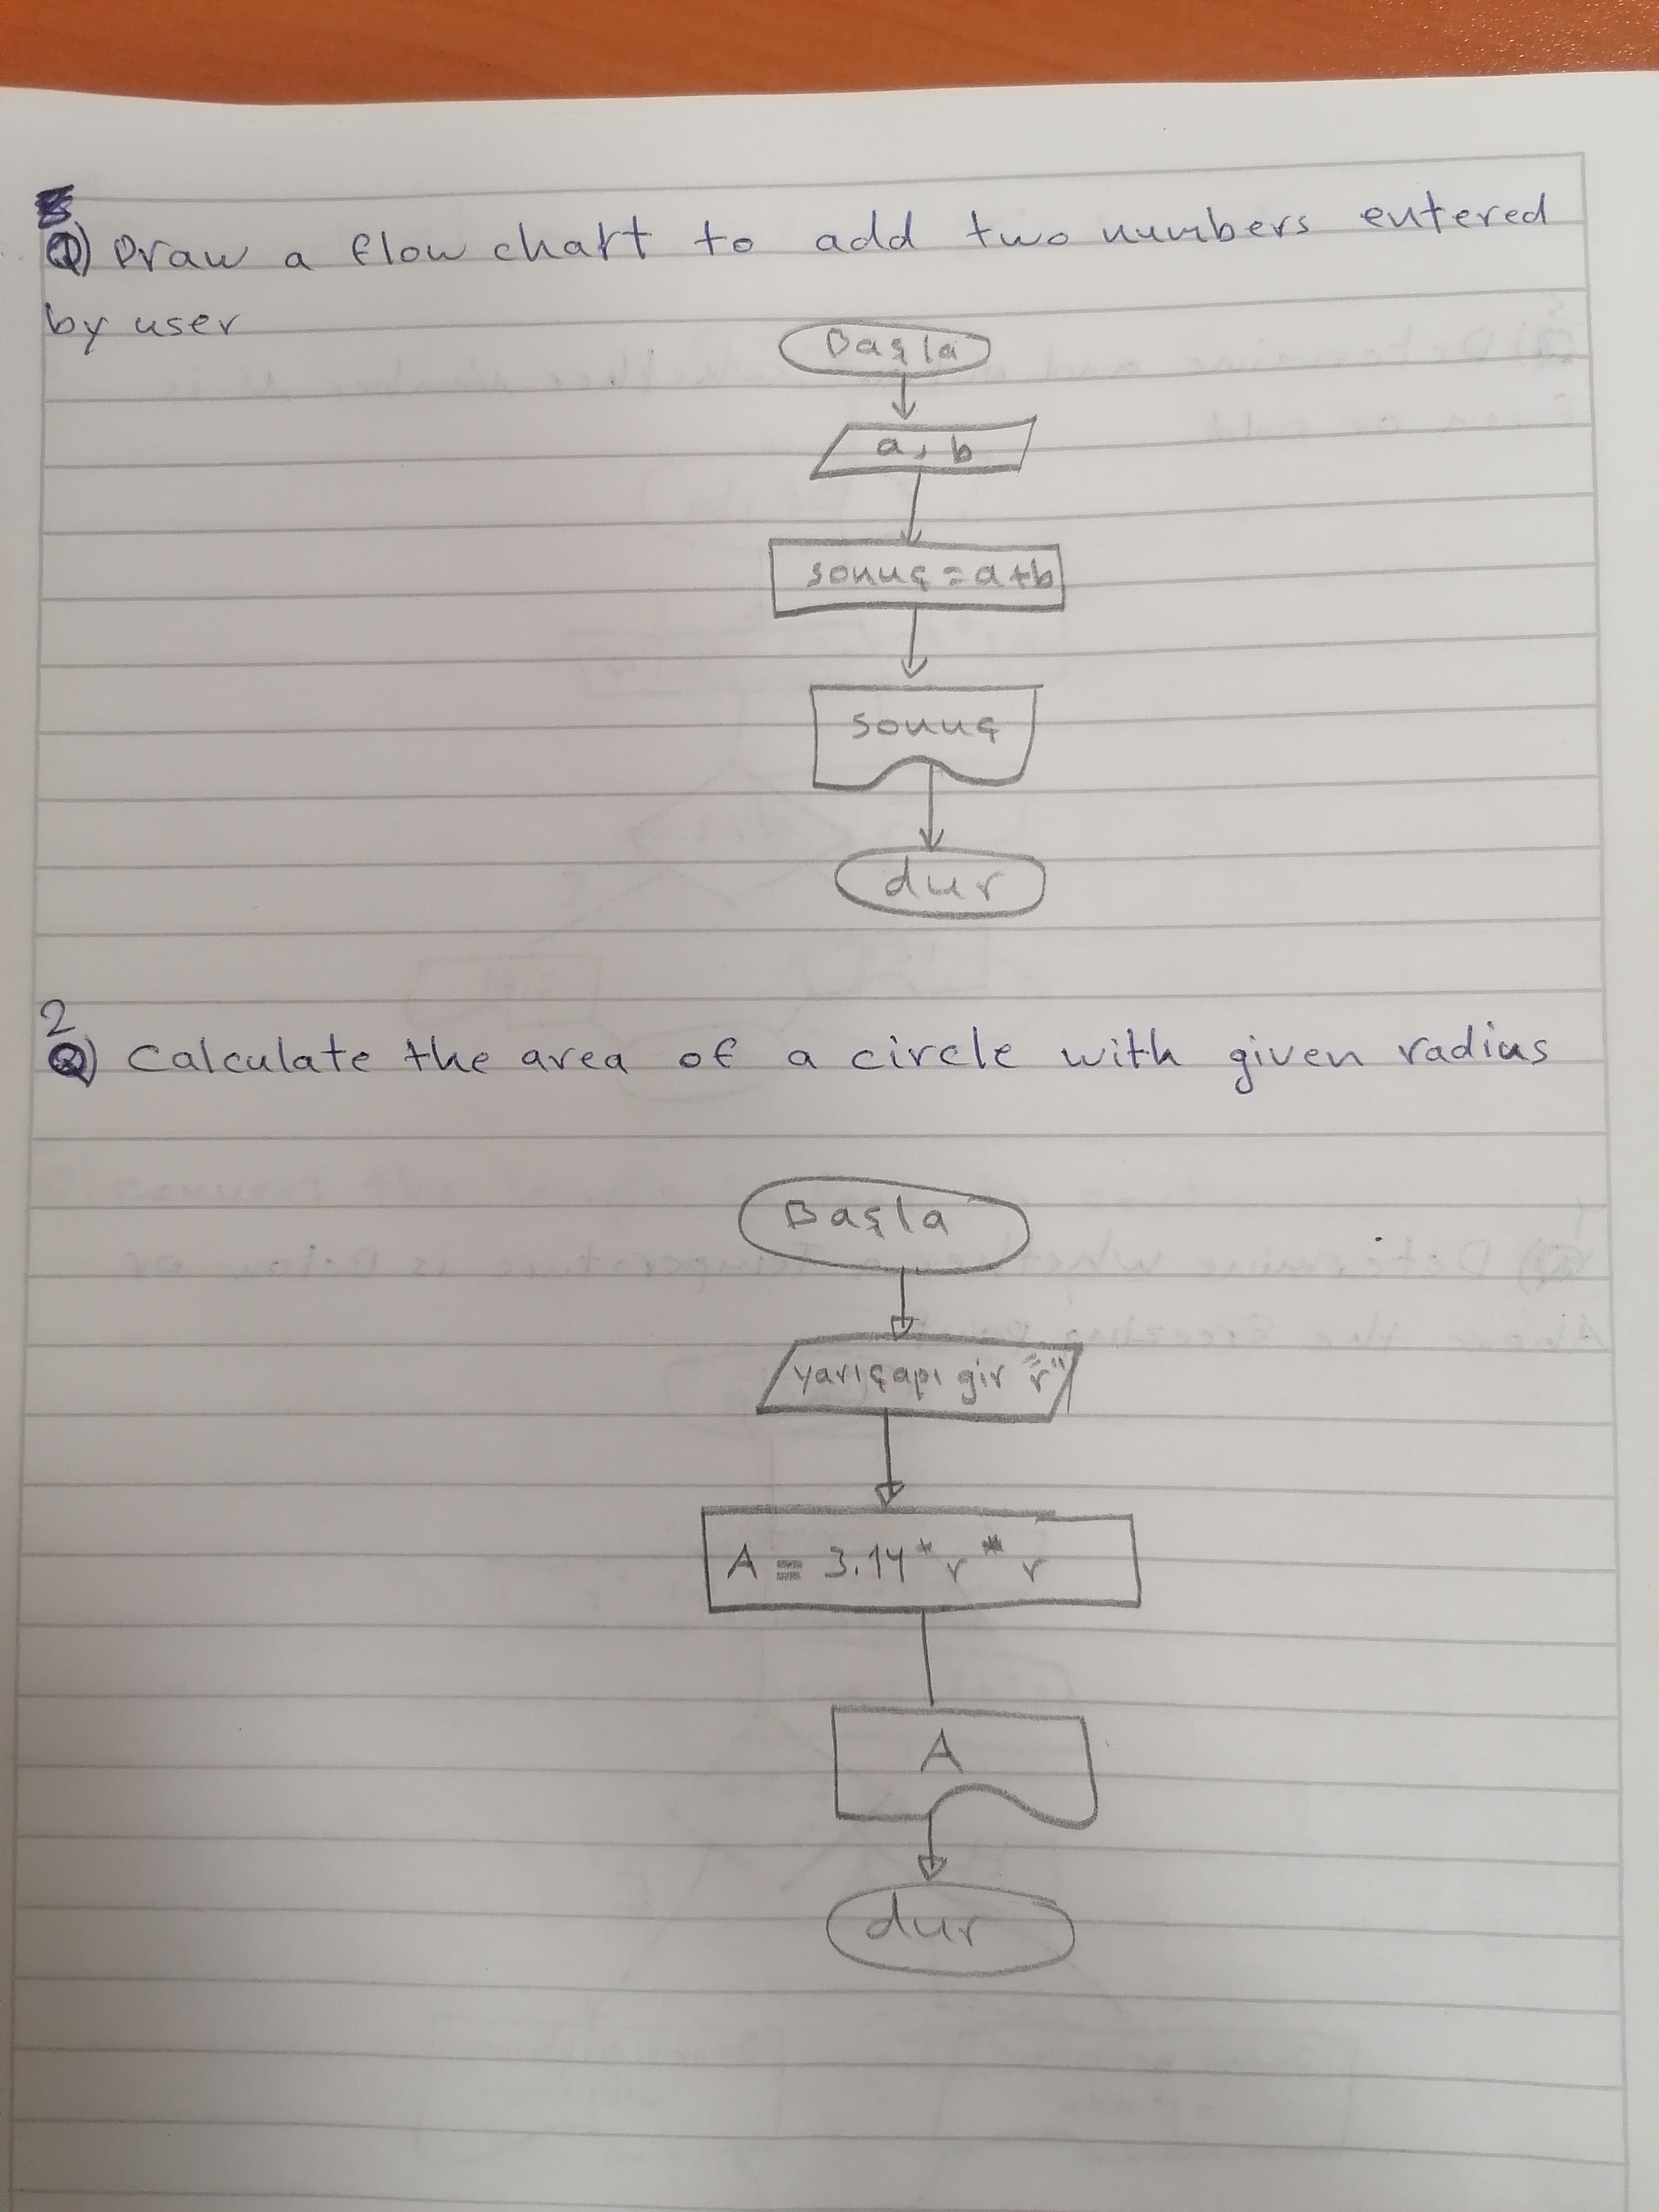 1) Draw a flow chart to add two numbers entered
by user
Başla
a, b
sonuç = a+b
sonuç
dur
2
Q) Calculate the area of a circle with given radius
Başla
yarıçapı gir "r"
A = 3.14 * r * r
A
dur